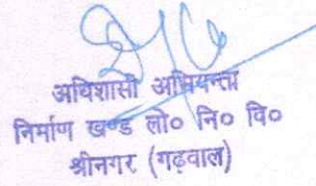 अधिशासी अभियन्ता
निर्माण खण्ड लो० नि० वि०
श्रीनगर (गढ़वाल)